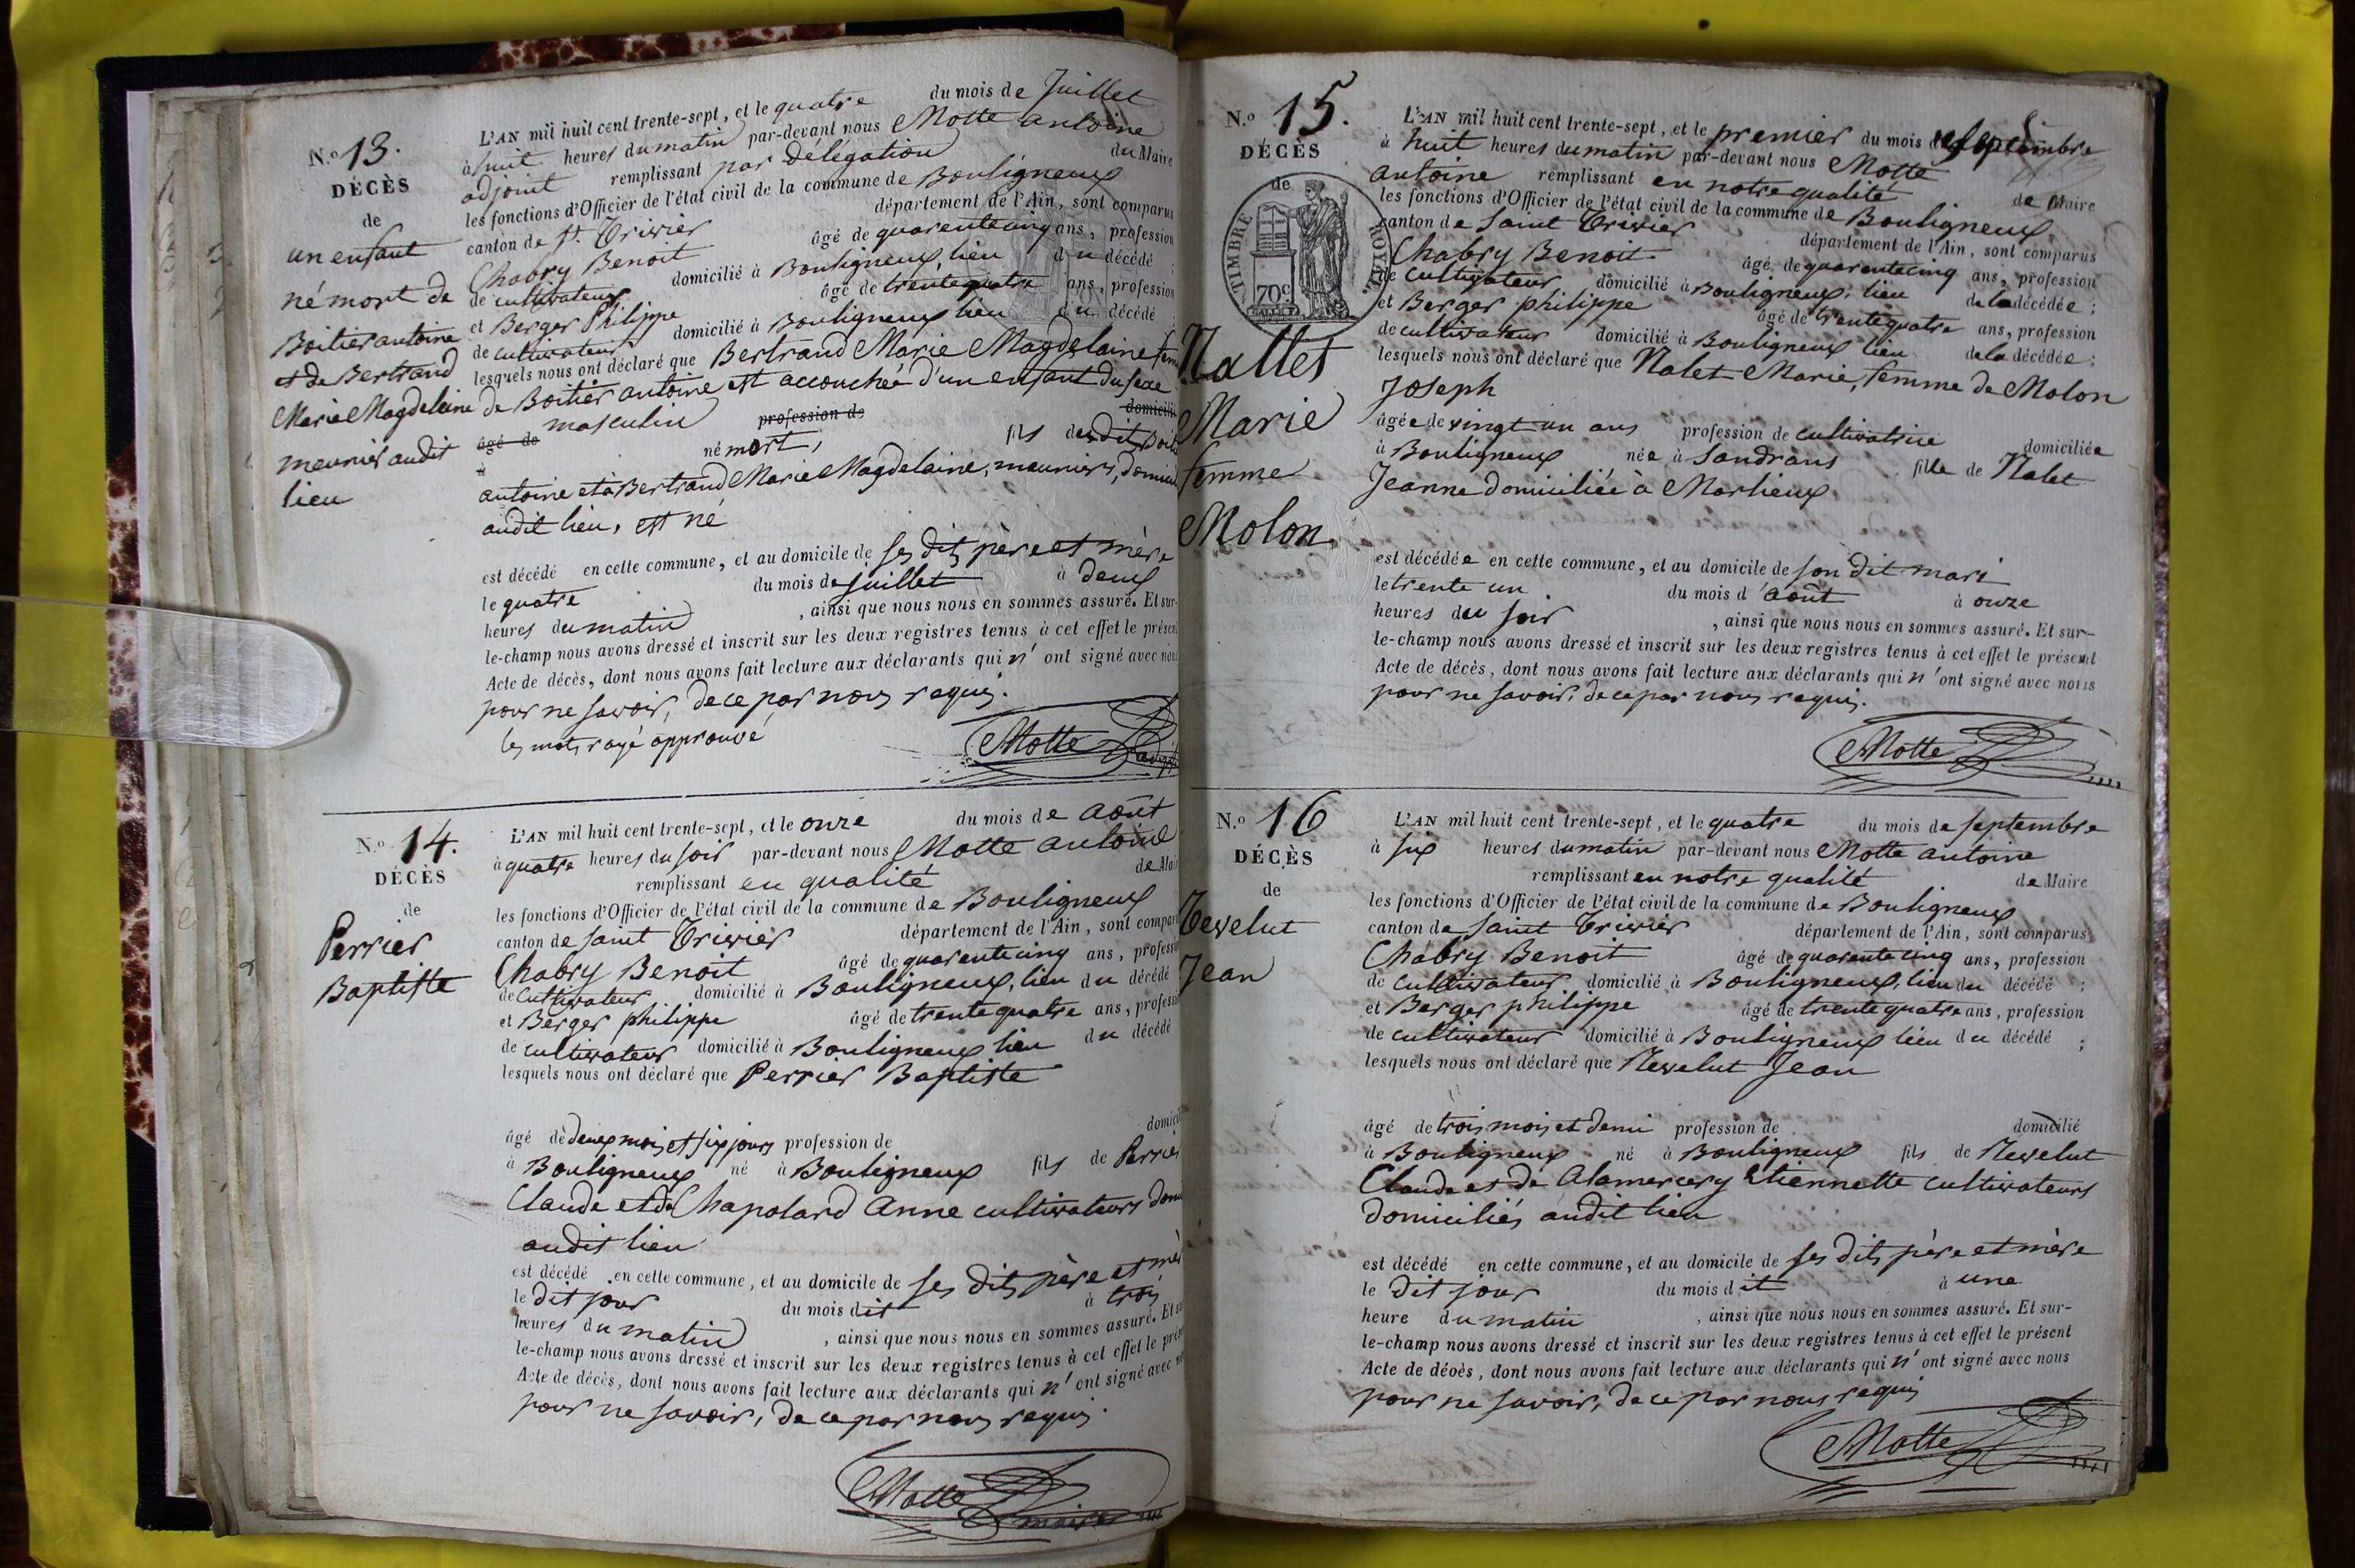 N.o 13.
DÉCÈS
de
un enfant
né mort de
Boitier antoine
et de Bertrand
Marie Magdeleine
meunier audit
lieu
L'AN mil huit cent trente-sept, et le quatre du mois de Juillet
à huit heures du matin par-devant nous Motte antoine
adjoint remplissant par délégation du Maire
les fonctions d'Officier de l'état civil de la commune de Bouligneux
canton de St. Trivier département de l'Ain, sont comparus
Chabry Benoit âgé de quarente cinq ans, profession
de cultivateur domicilié à Bouligneux, lieu du décédé ;
et Berger Philippe âgé de trente quatre ans, profession
de cultivateur domicilié à Bouligneux lieu du décédé ;
lesquels nous ont déclaré que Bertrand Marie Magdelaine
de Boitier antoine est accouchée d'un enfant du sexe
masculin profession de domicilié
âgé de
à né mort, fils des dits
antoine et à Bertrand Marie Magdelaine, meuniers,
audit lieu, est né
est décédé en cette commune, et au domicile de ses dits père et mère
le quatre du mois de juillet à deux
heures du matin , ainsi que nous nous en sommes assuré. Et sur-
le-champ nous avons dressé et inscrit sur les deux registres tenus à cet effet le présent
Acte de décès, dont nous avons fait lecture aux déclarants qui n' ont signé avec nous
pour ne savoir, de ce par nous requis.
les mots rayé approuvé
Motte
N.o 14.
DÉCÈS
de
Perrier
Baptiste
L'AN mil huit cent trente-sept, et le onze du mois de août
à quatre heures du soir par-devant nous Motte antoine
remplissant en qualité de Mair
les fonctions d'Officier de l'état civil de la commune de Bouligneux
canton de saint Trivier département de l'Ain, sont compar
Chabry Benoit âgé de quarente cinq ans, profession
de cultivateur domicilié à Bouligneux, lieu du décédé
et Berger philippe âgé de trente quatre ans, profession
de cultivateur domicilié à Bouligneux lieu du décédé
lesquels nous ont déclaré que Perrier Baptiste
âgé de deux mois et six jours profession de domici
à Bouligneux né à Bouligneux fils de Perrier
Claude et de Chapolard Anne cultivateurs dom
audit lieu
est décédé en cette commune, et au domicile de ses dits père et mèr
le dit jour du mois dit à trois
heures du matin , ainsi que nous nous en sommes assuré. Et s
le-champ nous avons dressé et inscrit sur les deux registres tenus à cet effet le prés
Acte de décès, dont nous avons fait lecture aux déclarants qui n' ont signé avec n
pour ne savoir, de ce par nous requis.
Motte
maire
N.o 15.
DÉCÈS
de
TIMBRE ROYAL
70c
Nallet
Marie
femme
Molon
L'AN mil huit cent trente-sept, et le premier du mois de septembre
à huit heures du matin par-devant nous Motte
antoine remplissant en notre qualité de Maire
les fonctions d'Officier de l'état civil de la commune de Bouligneux
canton de Saint Trivier département de l'Ain, sont comparus
Chabry Benoit âgé de quarente cinq ans, profession
de cultivateur domicilié à Bouligneux, lieu de la décédée ;
et Berger philippe âgé de trente quatre ans, profession
de cultivateur domicilié à Bouligneux lieu de la décédée ;
lesquels nous ont déclaré que Nalet Marie, femme de Molon
Joseph
âgée de vingt un ans profession de cultivatrice domiciliée
à Bouligneux née à Sandrans fille de Nalet
Jeanne domiciliée à Marlieux
est décédée en cette commune, et au domicile de son dit mari
le trente un du mois d'août à onze
heures du soir , ainsi que nous nous en sommes assuré. Et sur-
le-champ nous avons dressé et inscrit sur les deux registres tenus à cet effet le présent
Acte de décès, dont nous avons fait lecture aux déclarants qui n' ont signé avec nous
pour ne savoir, de ce par nous requis.
Motte
N.o 16
DÉCÈS
de
Tevelut
Jean
L'AN mil huit cent trente-sept, et le quatre du mois de septembre
à six heures du matin par-devant nous Motte antoine
remplissant en notre qualité de Maire
les fonctions d'Officier de l'état civil de la commune de Bouligneux
canton de Saint Trivier département de l'Ain, sont comparus
Chabry Benoit âgé de quarente cinq ans, profession
de cultivateur domicilié à Bouligneux, lieu du décédé ;
et Berger philippe âgé de trente quatre ans, profession
de cultivateur domicilié à Bouligneux lieu du décédé ;
lesquels nous ont déclaré que Tevelut Jean
âgé de trois mois et demi profession de domicilié
à Bouligneux né à Bouligneux fils de Tevelut
Claude et de Alamercery Etiennette cultivateurs
domiciliés audit lieu
est décédé en cette commune, et au domicile de ses dits père et mère
le dit jour du mois dit à une
heure du matin , ainsi que nous nous en sommes assuré. Et sur-
le-champ nous avons dressé et inscrit sur les deux registres tenus à cet effet le présent
Acte de décès, dont nous avons fait lecture aux déclarants qui n' ont signé avec nous
pour ne savoir, de ce par nous requis
Motte